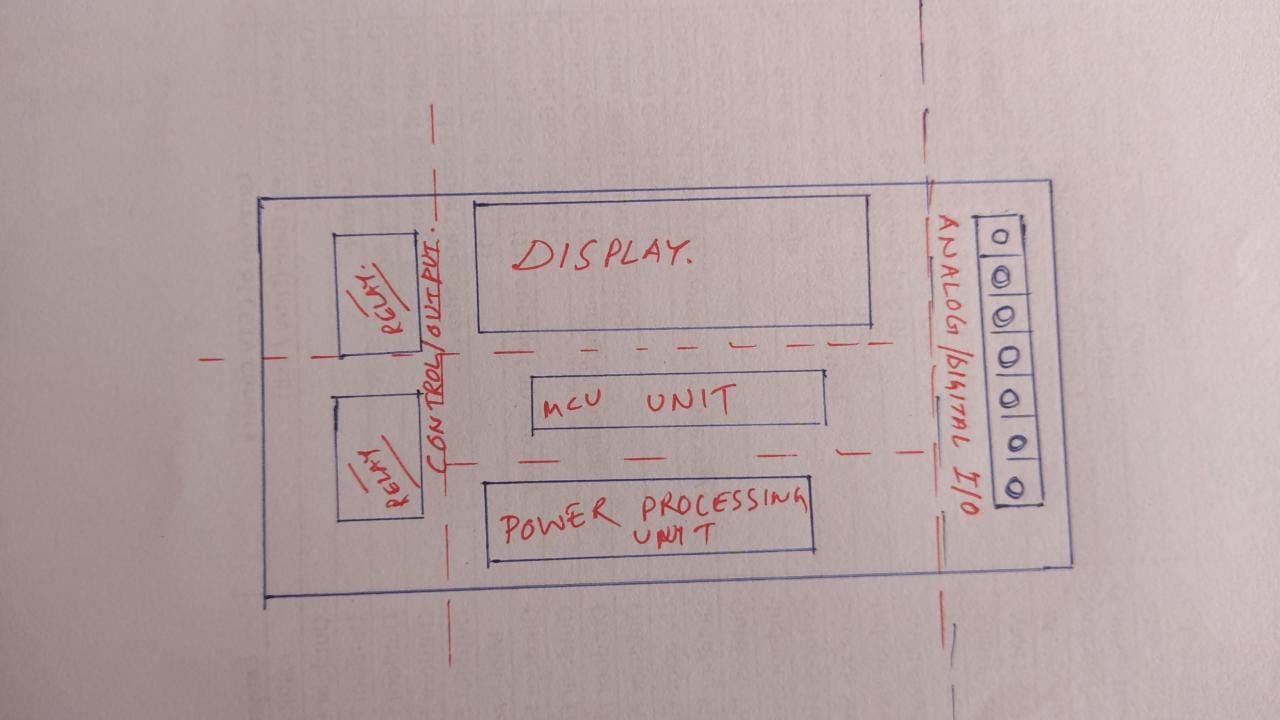 RELAY.
RELAY
CONTROL/OUTPUT.
DISPLAY.
MCU UNIT
POWER PROCESSING
UNIT
ANALOG/DIGITAL I/O